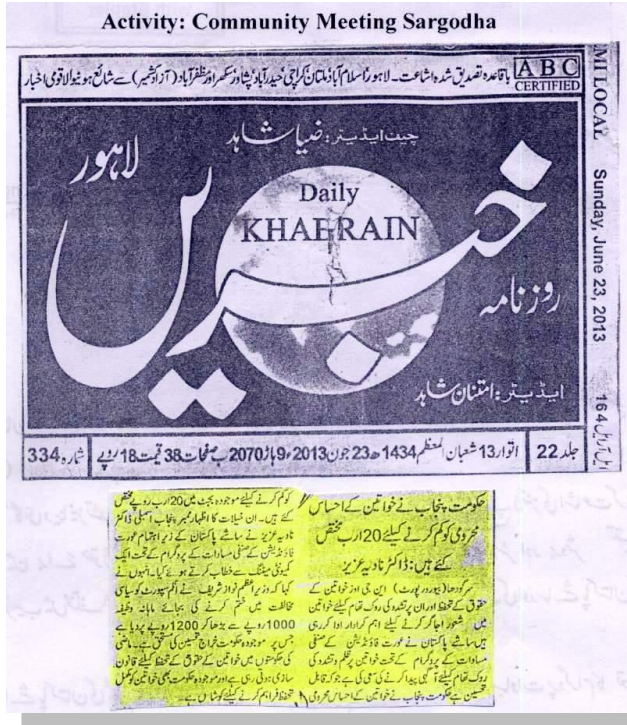 Activity: Community Meeting Sargodha
باقاعدہ تصدیق شدہ اشاعت۔ لاہور، اسلام آباد، ملتان، کراچی، حیدرآباد، پشاور، سکھر اور مظفر آباد (آزاد کشمیر) سے شائع ہونیوالا قومی اخبار
ABC
CERTIFIED
MI LOCAL
Sunday, June 23, 2013
164
چیف ایڈیٹر: ضیا شاہد
لاہور
Daily
KHABRAIN
خبریں
روزنامہ
ایڈیٹر: امتنان شاہد
جلد 22
اتوار 13 شعبان المعظم 1434ھ 23 جون 2013ء 9 ہاڑ 2070ب صفحات 38 قیمت 18 روپے
شمارہ 334
حکومت پنجاب نے خواتین کے احساس
محرومی کو کم کرنے کیلئے 20 ارب مختص
کئے ہیں: ڈاکٹر نادیہ عزیز
سرگودھا (بیورورپورٹ) این جی اوز خواتین کے
حقوق کے تحفظ اور ان پر تشدد کی روک تھام کیلئے خواتین
میں شعور اجاگر کرنے کیلئے اہم کردار ادا کر رہی
ہیں سانجھے پاکستان نے عورت فاؤنڈیشن کے صنفی
مساوات کے پروگرام کے تحت خواتین پر ظلم و تشدد کی
روک تھام کیلئے آگہی پیدا کرنے کی سعی کی ہے جو کہ قابل
تحسین ہے حکومت پنجاب نے خواتین کے احساس محرومی
کو کم کرنے کیلئے موجودہ بجٹ میں 20 ارب روپے مختص
کئے ہیں۔ ان خیالات کا اظہار ممبر پنجاب اسمبلی ڈاکٹر
نادیہ عزیز نے سانجھے پاکستان کے زیر اہتمام عورت
فاؤنڈیشن کے صنفی مساوات کے پروگرام کے تحت ایک
کمیونٹی میٹنگ سے خطاب کرتے ہوئے کیا۔ انہوں نے
کہا کہ وزیر اعظم نواز شریف نے انکم سپورٹ کو سیاسی
مخالفت میں ختم کرنے کی بجائے ماہانہ وظیفہ
1000 روپے سے بڑھا کر 1200 روپے کر دیا ہے
جس پر موجودہ حکومت خراج تحسین کی مستحق ہے۔ ماضی
کی حکومتوں میں خواتین کے حقوق کے تحفظ کیلئے قانون
سازی ہوتی رہی ہے اور موجودہ حکومت بھی خواتین کو مکمل
تحفظ فراہم کرنے کیلئے کوشاں ہے۔